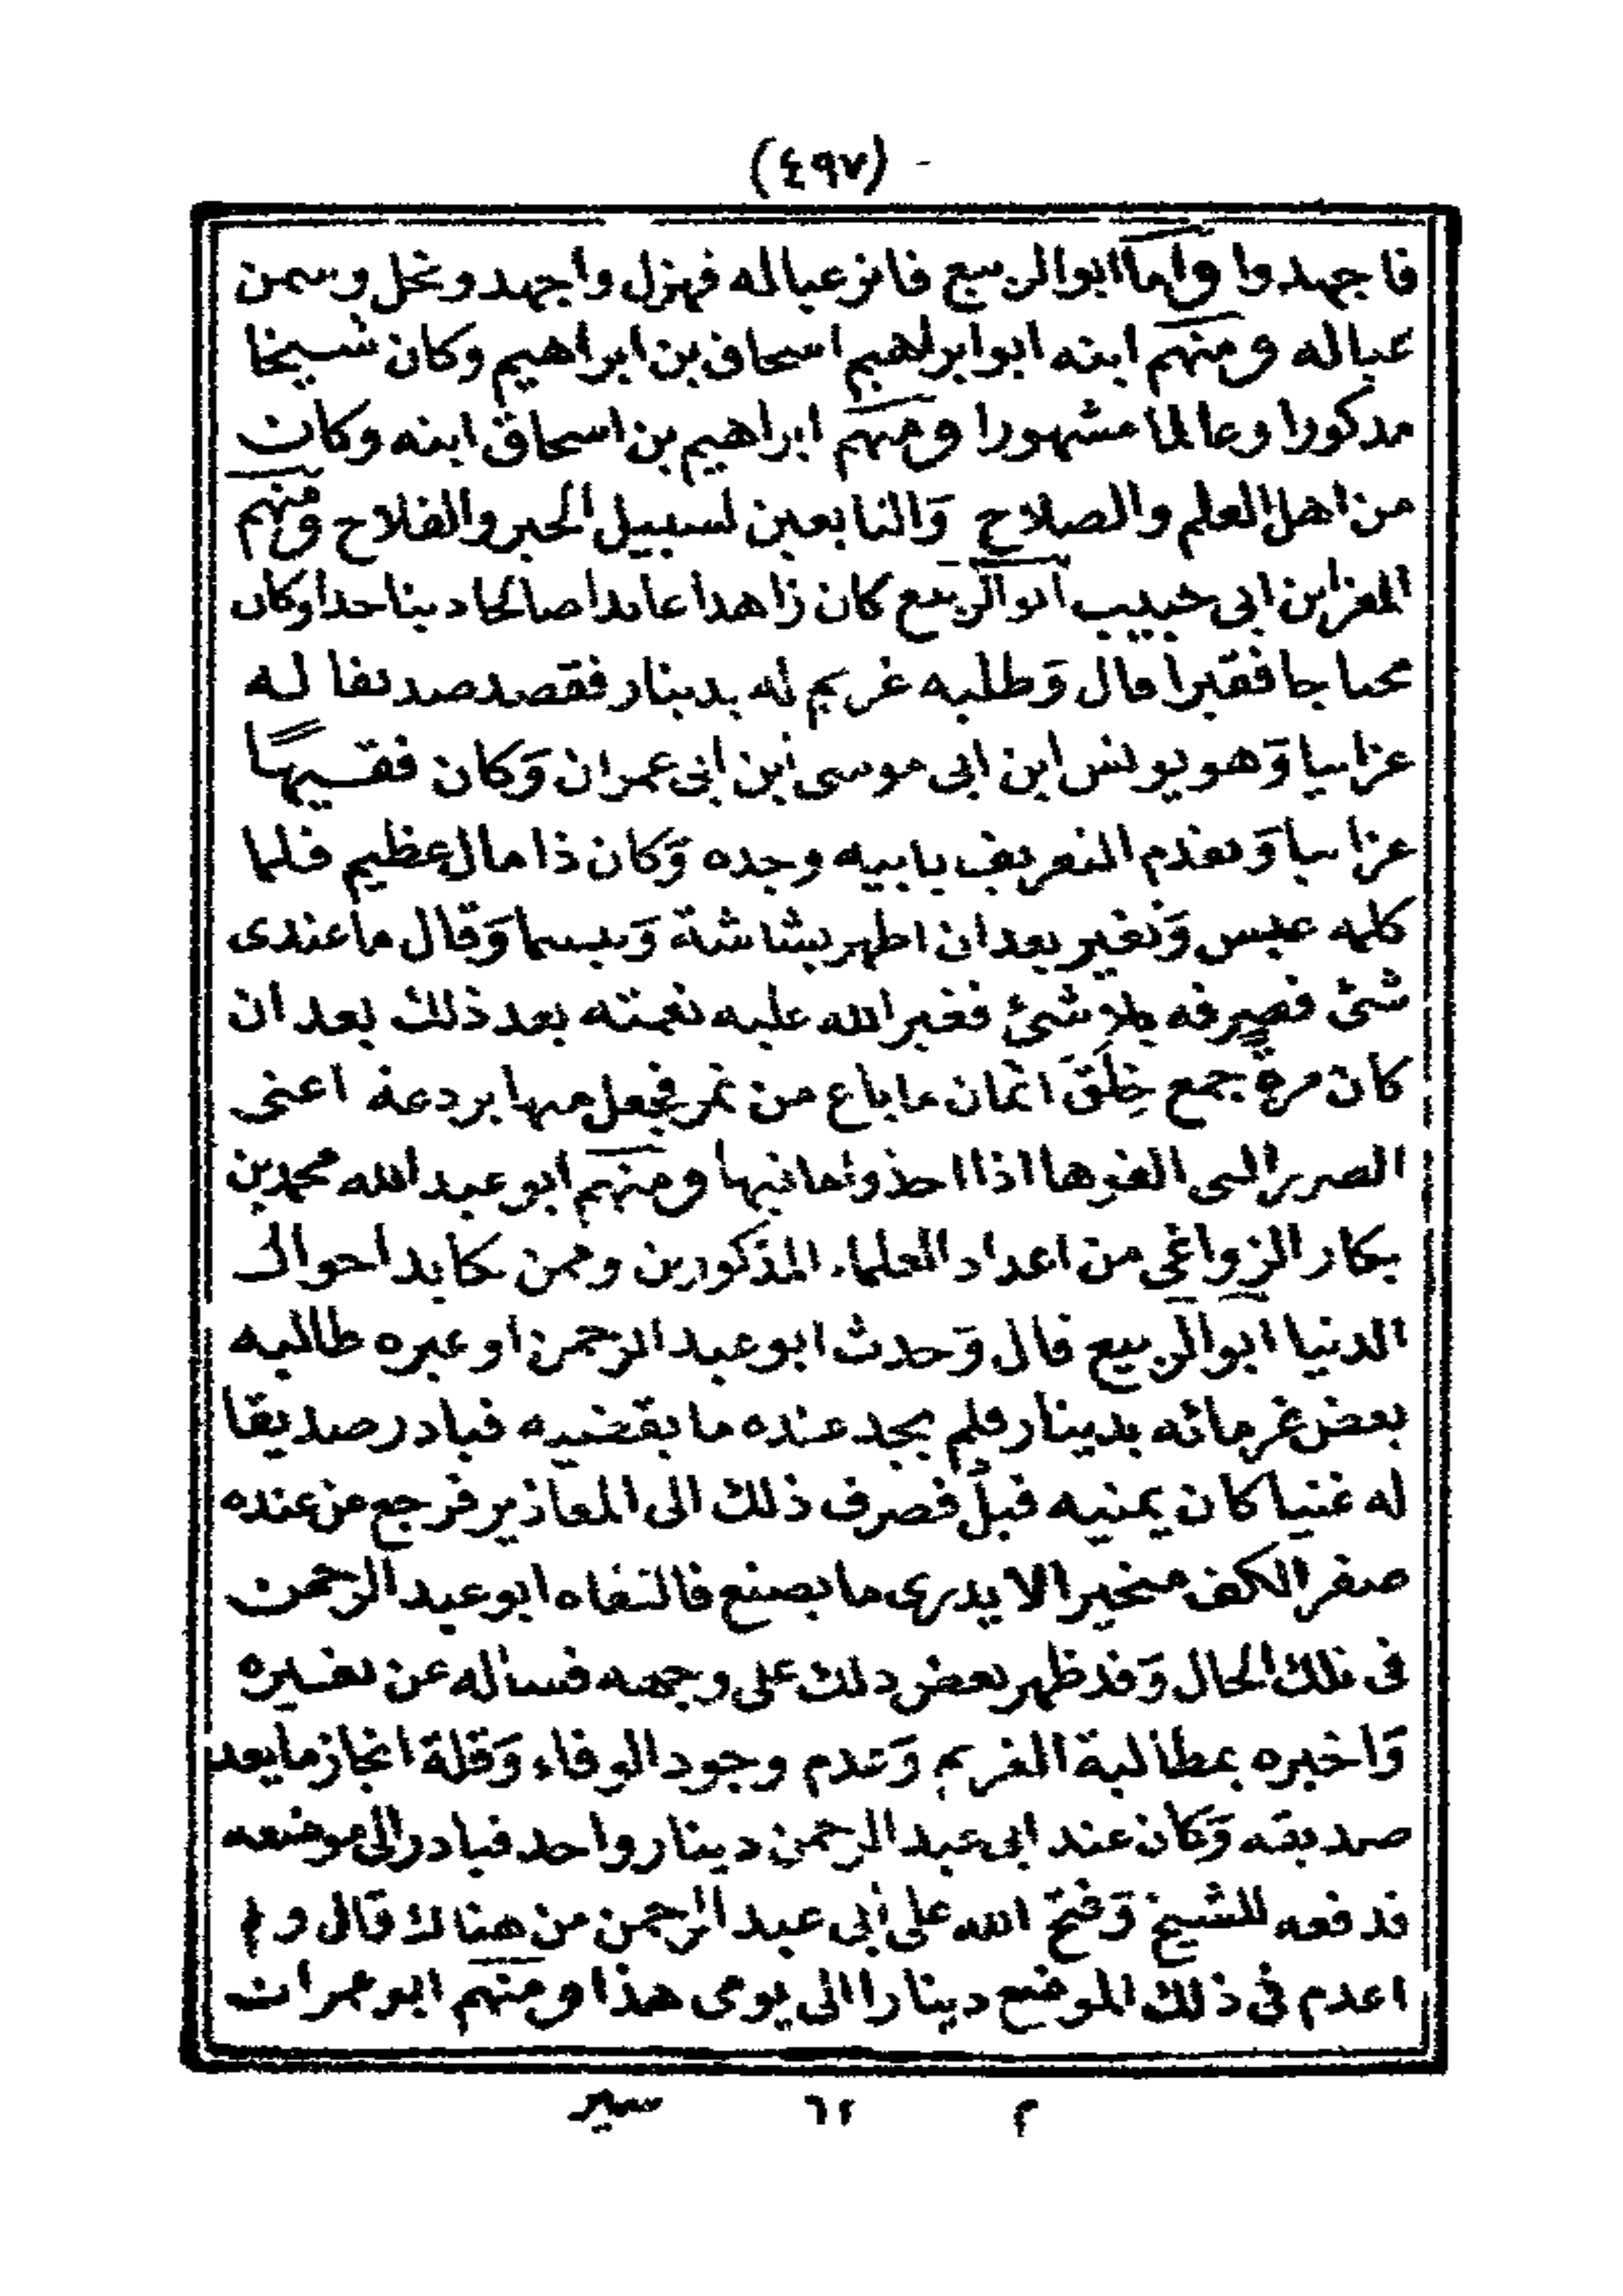 (٤٩٧)
فاجهدوا واما ابوالربيع فاثر عياله فهزل واجهد ونحل وسمن
عياله ومنهم ابنه ابوابراهيم اسحاق بن ابراهيم وكان شيخا
مذكورا وعالما مشهورا ومنهم ابراهيم بن اسحاق ابنه وكان
من اهل العلم والصلاح وَالتابعين لسبيل الخير والفلاح ومنهم
المعز ابن ابى حبيب ابوالربيع كان زاهدا عابدا صالحا دينا جدا وكان
محتاجا فقيرا قال وَطلبه غريم له بدينار فقصد صديقا له
عزابيا وَهو يونس ابن ابى موسى ابن ابى عمران وَكان فقيها
عزابيا وَتقدم التعريف بابيه وجده وَكان ذا مال عظيم فلما
كلمه عبس وَتغير بعد ان اظهر بشاشة وَتبسما وَقال ما عندى
شئ فصرفه بلا شئ فغير الله عليه نعمته بعد ذلك بعد ان
كان مرة جمع خِلَقَ اثمان ما باع من تمر فجعل منها بردعة اعنى
الصرر التى القوها اذا اخذوا ما فيها ومنهم ابو عبد الله محمد بن
بكار الزواغى من اعداد العلماء المذكورين وممن يكابد احوال
الدنيا ابوالربيع قال وَحدث ابوعبد الرحمن او غيره طالبه
بعض غرمائه بدينار فلم يجد عنده ما يقضيه فبادر صديقا
له غنيا كان يمنيه قبلُ فصرف ذلك الى المعاذير فرجع من عنده
صفر الكف متحيرا لا يدرى ما يصنع فالتقاه ابو عبد الرحمن
فى تلك الحال وَقد ظهر بعض ذلك على وجهه فساله عن تغييره
وَاخبره بمطالبة الغريم وَعدم وجود الوفاء وَقلة انجاز ما يعد
صديقه وَكان عند ابى عبد الرحمن دينار واحد فبادر الى موضعه
فدفعه للشيخ وَفتح الله على أبى عبد الرحمن من هناك قال ولم
اعدم فى ذلك الموضع دينارا الى يومى هذا ومنهم ابو عمران
م ٦٢ سير